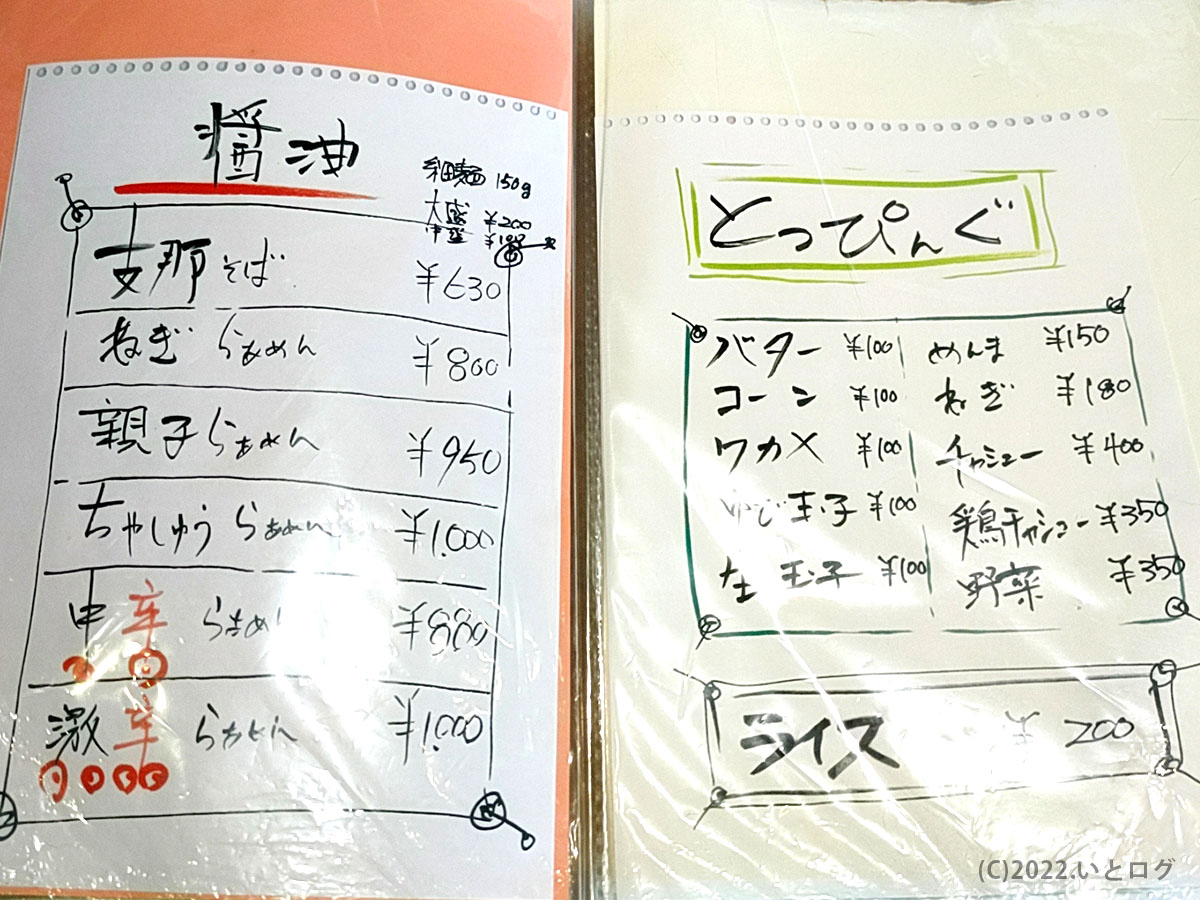 醤油
細麺 150g
大盛 ¥200
中盛 ¥100
支那そば ¥630
ねぎ らぁめん ¥800
親子らぁめん ¥950
ちゃしゅう らぁめん ¥1.000
中辛 らぁめん ¥880
激辛 らぁめん ¥1.000
とっぴんぐ
バター ¥100 めんま ¥150
コーン ¥100 ねぎ ¥180
ワカメ ¥100 チャシュー ¥400
ゆで玉子 ¥100 鶏チャシュー ¥350
生玉子 ¥100 野菜 ¥350
ライス ¥200
(C)2022.いとログ